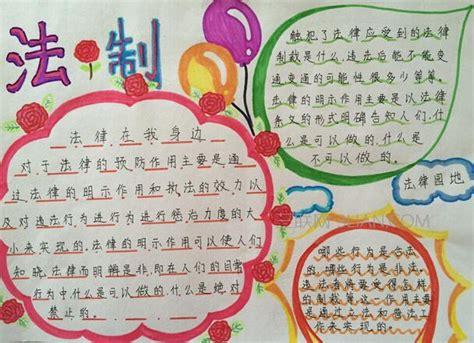 法制
法律在我身边
对于法律的预防作用主要是通
过法律的明示作用和执法的效力以
及对违法行为进行行为进行惩治力度的大
小来实现的,法律的明示作用可以使人们
知晓法律而明辨是非,即在人们的日常
行为中什么是可以做的,什么是绝对
禁止的.
触犯了法律应受到的法律
制裁是什么,违法后能不能变
通变通的可能性很多少等等.
法律的明示作用主要是以法律
条文的形式明确告知人们,什
么是可以做的,什么是
不可以做的.
法律园地
哪些行为是合法
的,哪些行为是非法,
违法者将要受得怎样
的制裁等,这一作用主要
是通过立法和普法工
作来实现的.